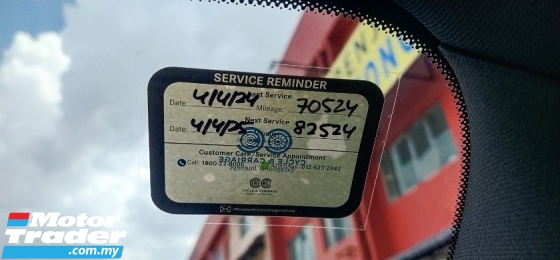 SERVICE REMINDER
Last Service
Date: 4/4/24 Mileage: 70524
Next Service
Date: 4/4/25 82524
Customer Care / Service Appointment
Call: 1800-22-8000 012-420 2642
CYCLE & CARRIAGE
CYCLE & CARRIAGE
Motor
Trader
.com.my